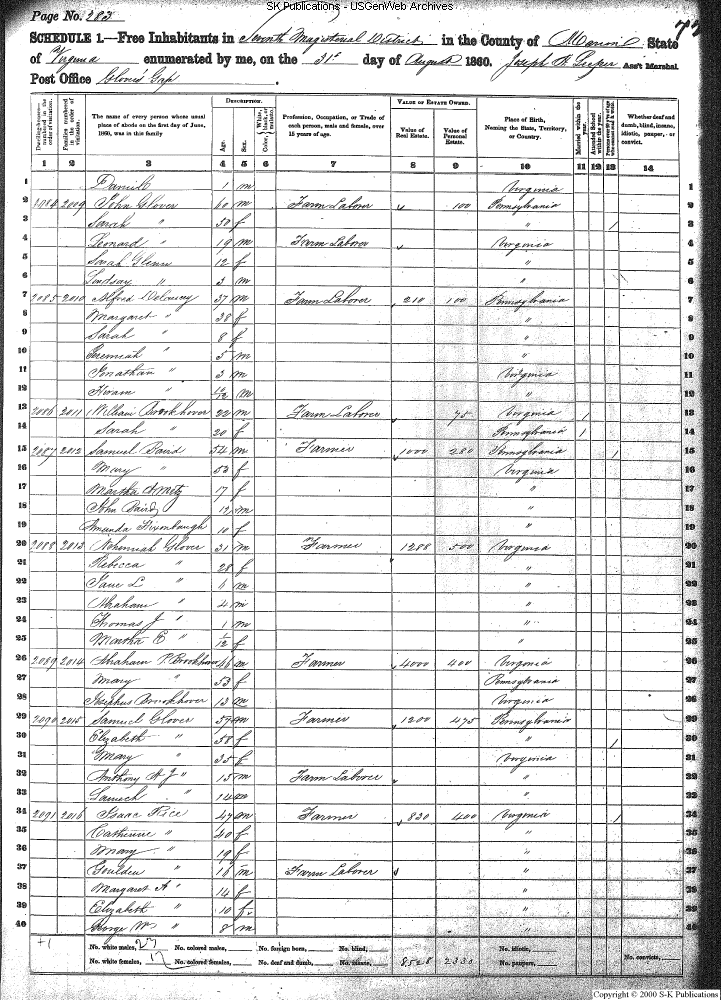 SK Publications - USGenWeb Archives
Page No. 283
SCHEDULE 1.—Free Inhabitants in Seventh Magisterial District in the County of Marion State
of Virginia enumerated by me, on the 31st day of August 1860. Joseph Ass't Marshal
Post Office Glover's Gap
Dwelling-houses—numbered in the order of visitation.
Families numbered in the order of visitation.
The name of every person whose usual place of abode on the first day of June, 1860, was in this family
DESCRIPTION.
Age.
Sex.
Color, White, black, or mulatto.
Profession, Occupation, or Trade of each person, male and female, over 15 years of age.
VALUE OF ESTATE OWNED.
Value of Real Estate.
Value of Personal Estate.
Place of Birth, Naming the State, Territory, or Country.
Married within the year.
Attended School within the year.
Whether deaf and dumb, blind, insane, idiotic, pauper, or convict.
1 2 3 4 5 6 7 8 9 10 11 12 13 14
1 Daniel 1 m Virginia 1
2 2084 2009 John Glover 60 m Farm Laborer 100 Pennsylvania 2
3 Sarah " 50 f " 1 3
4 Leonard " 19 m Farm Laborer Virginia 4
5 Sarah Glenn 12 f " 5
6 Lindsay " 3 m " 6
7 2085 2010 Alfred 37 m Farm Laborer 210 100 Pennsylvania 7
8 Margaret " 38 f " 8
9 Sarah " 8 f " 9
10 Jeremiah " 5 m " 10
11 Jonathan " 3 m Virginia 11
12 Hiram " m " 12
13 2086 2011 William Brookhover 22 m Farm Laborer 75 Virginia 1 13
14 Sarah " 20 f Pennsylvania 1 14
15 2087 2012 Samuel Baird 54 m Farmer 1000 280 Pennsylvania 1 15
16 Mary " 53 f Virginia 16
17 Martha 17 f " 17
18 John Baird 12 m " 18
19 Amanda 10 f " 19
20 2088 2013 Nehemiah Glover 31 m Farmer 1288 500 Virginia 20
21 Rebecca " 28 f " 21
22 Jane L " 6 m " 22
23 Abraham " 4 m " 23
24 Thomas J " 1 m " 24
25 Martha E " 1/12 f " 25
26 2089 2014 Abraham P. Brookhover 46 m Farmer 4000 400 Virginia 26
27 Mary " 53 f Pennsylvania 27
28 Josephus Brookhover 13 m Virginia 28
29 2090 2015 Samuel Glover 57 m Farmer 1200 475 Pennsylvania 29
30 Elizabeth " 58 f " 1 30
31 Mary " 35 f Virginia 31
32 Anthony A J " 15 m Farm Laborer " 32
33 14 m " 33
34 2091 2016 Isaac Rice 47 m Farmer 830 400 Virginia 1 34
35 Catherine " 40 f " 35
36 Mary " 19 f " 36
37 Goulden " 16 m Farm Laborer " 37
38 Margaret A " 14 f " 38
39 Elizabeth " 10 f " 39
40 George W " 8 m " 40
+1 No. white males, 23 No. colored males, No. foreign born, No. blind, No. idiotic,
No. white females, 17 No. colored females, No. deaf and dumb, No. insane, 8528 2330 No. paupers, No. convicts,
Copyright © 2000 S-K Publications